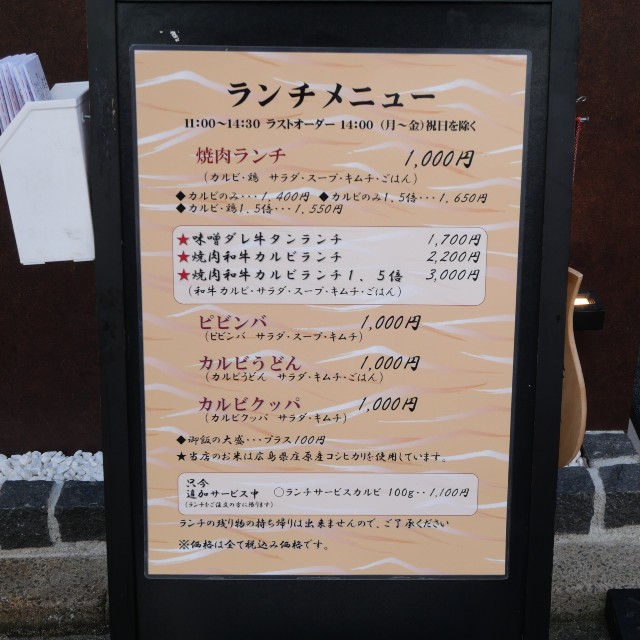 ランチメニュー
11:00～14:30 ラストオーダー 14:00 (月～金)祝日を除く
焼肉ランチ 1,000円
(カルビ・鶏 サラダ・スープ・キムチ・ごはん)
◆カルビのみ・・・1,400円 ◆カルビのみ1.5倍・・・1,650円
◆カルビ・鶏1.5倍・・・1,550円
★味噌ダレ牛タンランチ 1,700円
★焼肉和牛カルビランチ 2,200円
★焼肉和牛カルビランチ1、5倍 3,000円
(和牛カルビ・サラダ・スープ・キムチ・ごはん)
ピビンバ 1,000円
(ピビンバ サラダ・スープ・キムチ)
カルビうどん 1,000円
(カルビうどん サラダ・キムチ・ごはん)
カルビクッパ 1,000円
(カルビクッパ サラダ・キムチ)
◆御飯の大盛・・・プラス100円
★当店のお米は広島県庄原産コシヒカリを使用しています。
只今
追加サービス中 ○ランチサービスカルビ 100g・・1,100円
(ランチをご注文の方に限ります)
ランチの残り物の持ち帰りは出来ませんので、ご了承ください
※価格は全て税込み価格です。